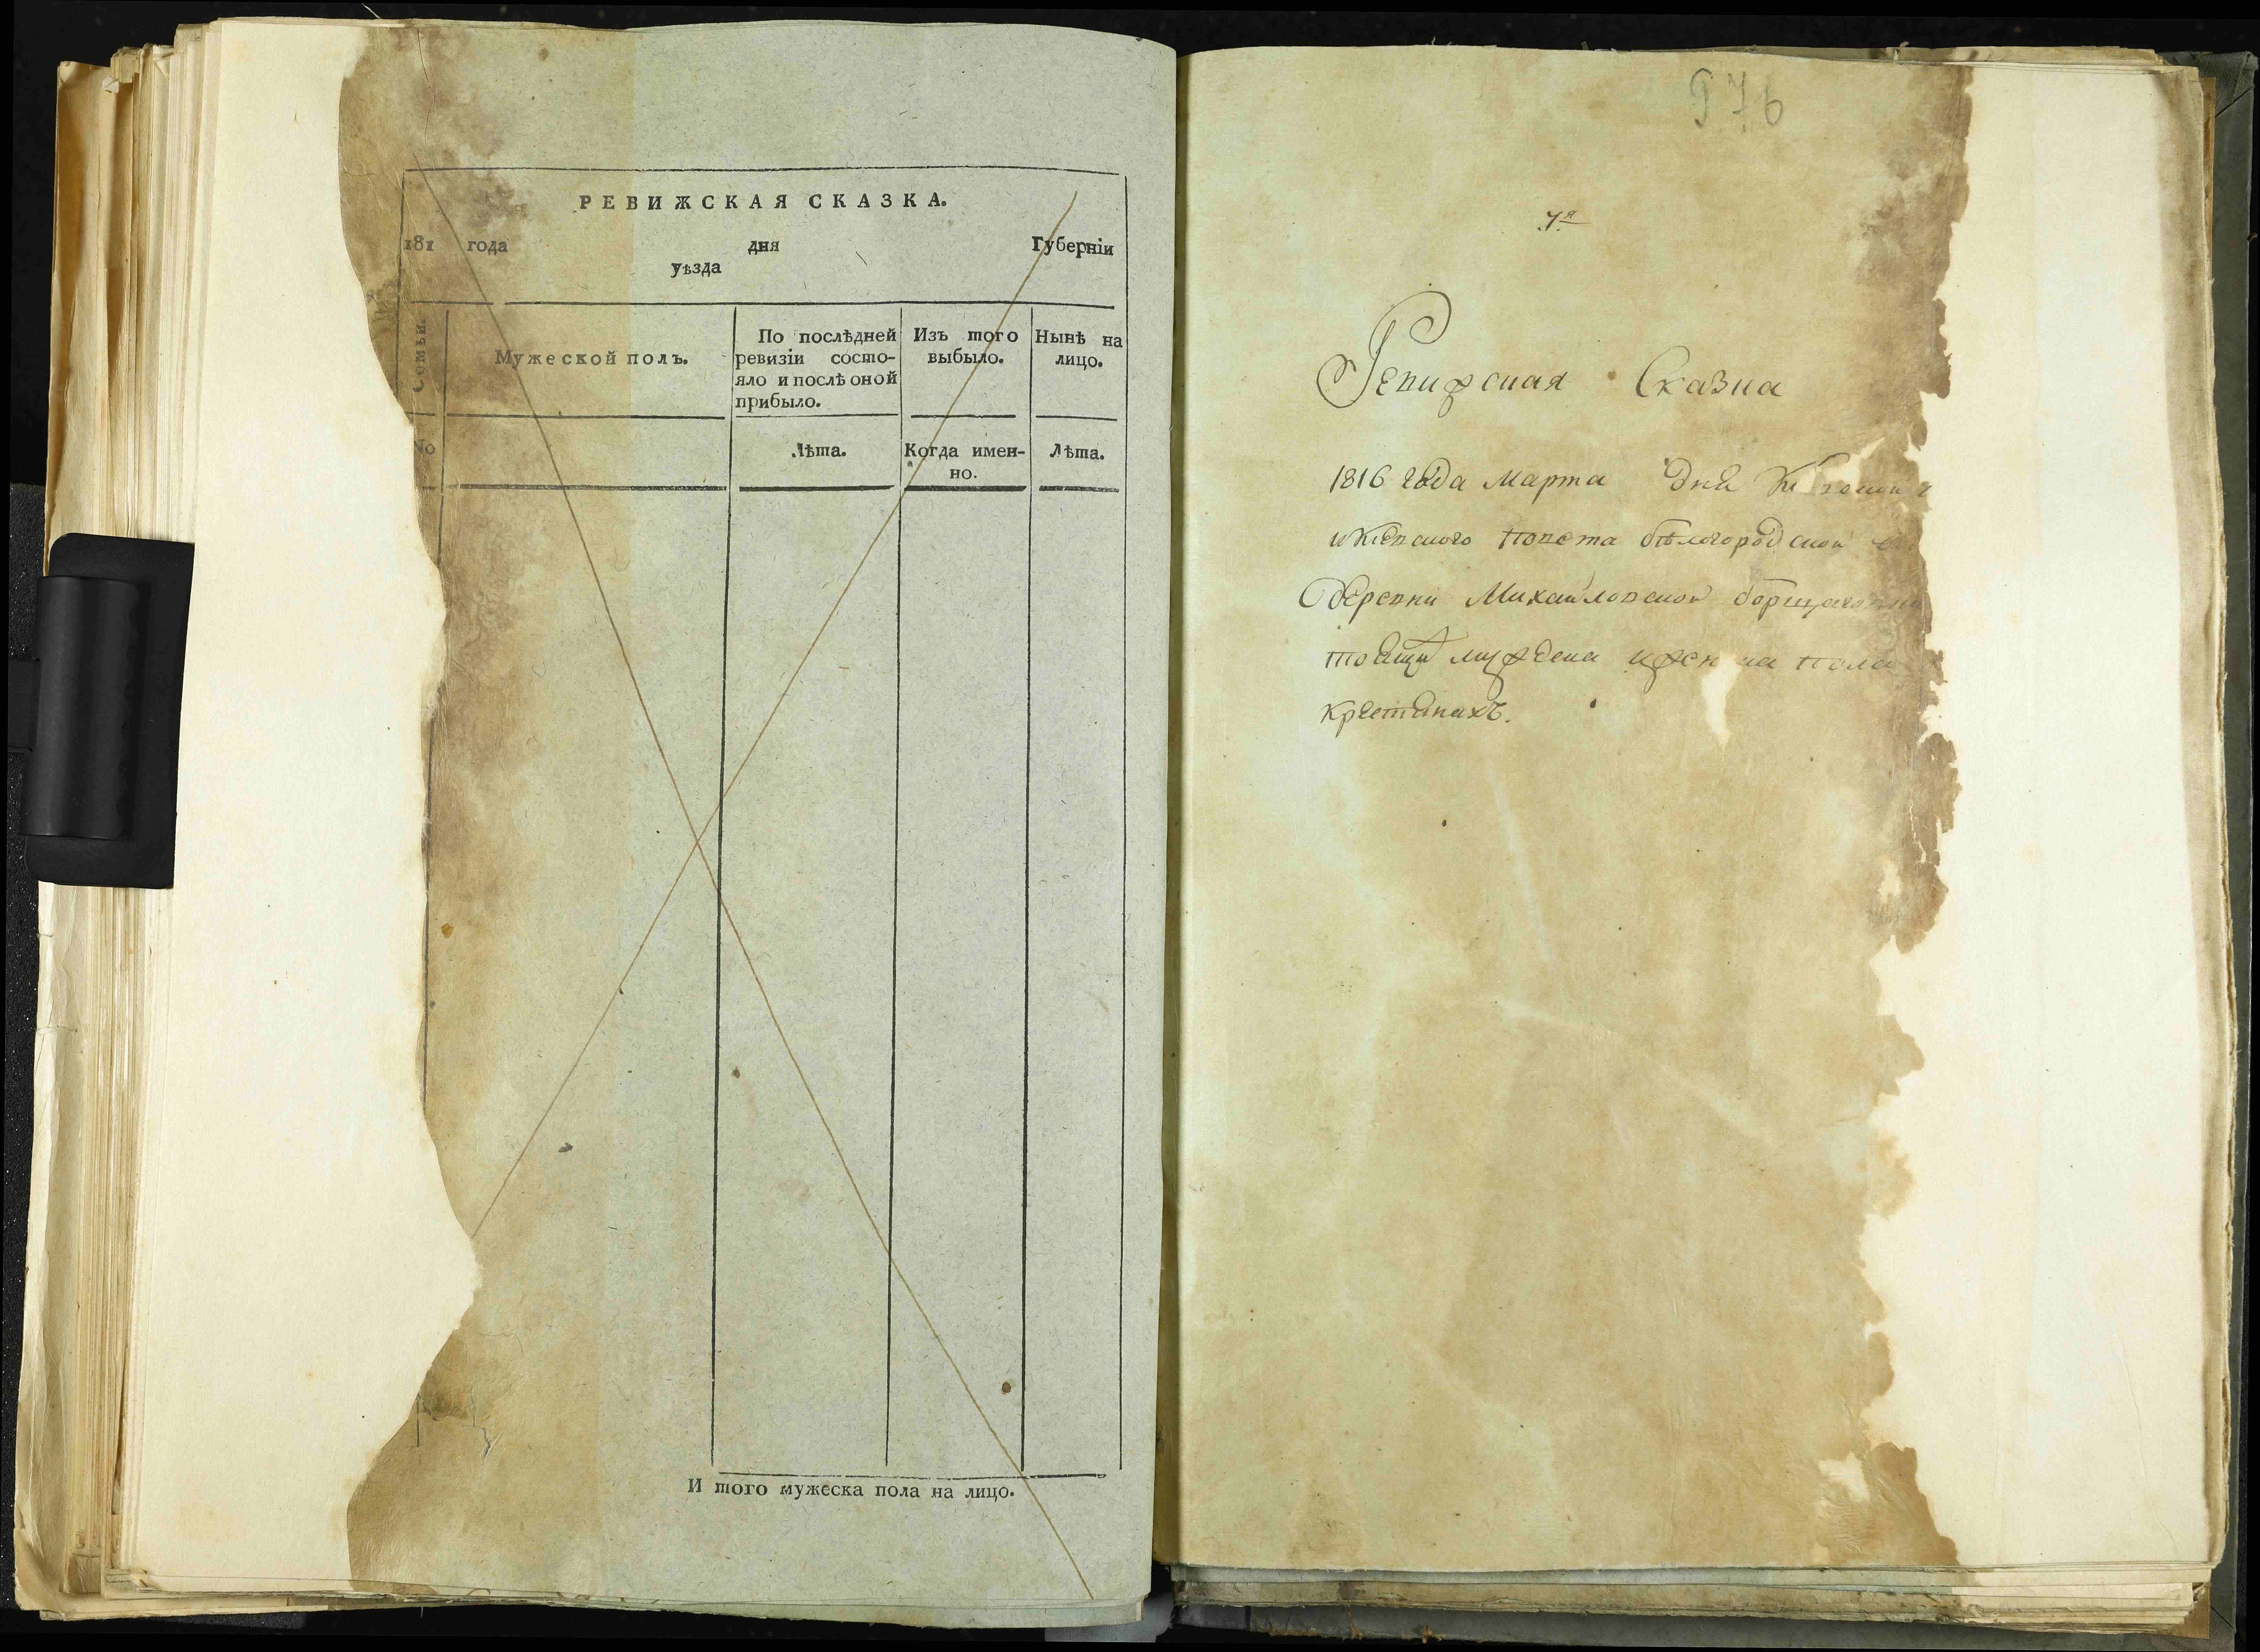 РЕВИЖСКАЯ СКАЗКА.
181 года дня Губерніи
уѣзда
Семьи.
Мужеской полъ.
По послѣдней ревизіи состо-
яло и послѣ оной
прибыло.
Изъ того
выбыло.
Нынѣ на
лицо.
No
Лѣта.
Когда имен-
но.
Лѣта.
И того мужеска пола на лицо.
976
7я
Ревижская Сказка
1816 года марта дня
и Кіевского Повета бѣлогородской
деревни Михайловской борщаговки
мужеска и женска пола
крестянахъ.